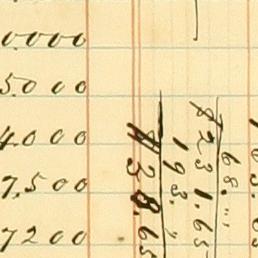 0000
5000
4000
7,500
7200
68.
$231.65
193.
$38.65